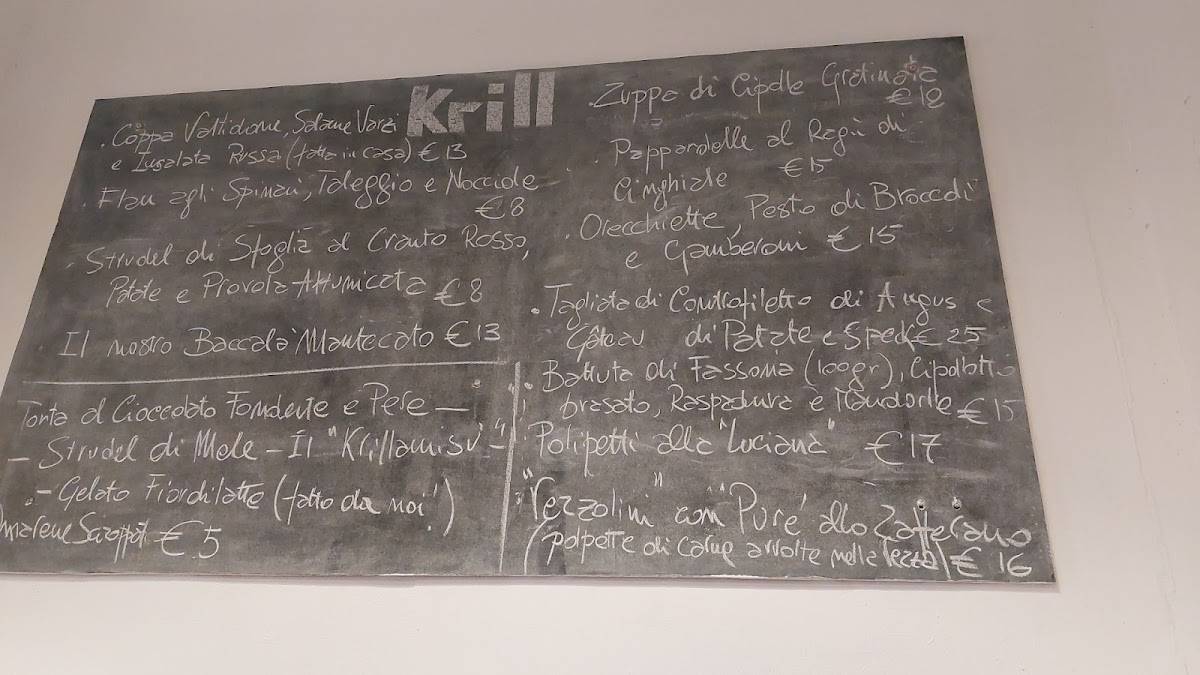 Krill
. Coppa Valtidone, Salame Varzi
e Insalata Russa (fatta in casa) € 13
. Flan agli Spinaci, Taleggio e Nocciole
€ 8
. Strudel di Sfoglia al Crauto Rosso,
Patate e Provola Affumicata € 8
. Il nostro Baccalà Mantecato € 13
Torta al Cioccolato Fondente e Pere –
– Strudel di Mele – Il "Krillamisù" –
– Gelato Fiordilatte (fatto da noi!)
Amarene Sciroppate € 5
. Zuppa di Cipolle Gratinata
€ 12
. Pappardelle al Ragù di
Cinghiale € 15
. Orecchiette, Pesto di Broccoli
e Gamberoni € 15
. Tagliata di Controfiletto di Angus e
Gâteau di Patate e Speck € 25
. Battuta di Fassona (100gr), Cipollotto
brasato, Raspadura e Mandorle € 15
. Polipetti alla "Luciana" € 17
. "Verzolini" con "Purè" allo Zafferano
(polpette di carne avvolte nella verza) € 16